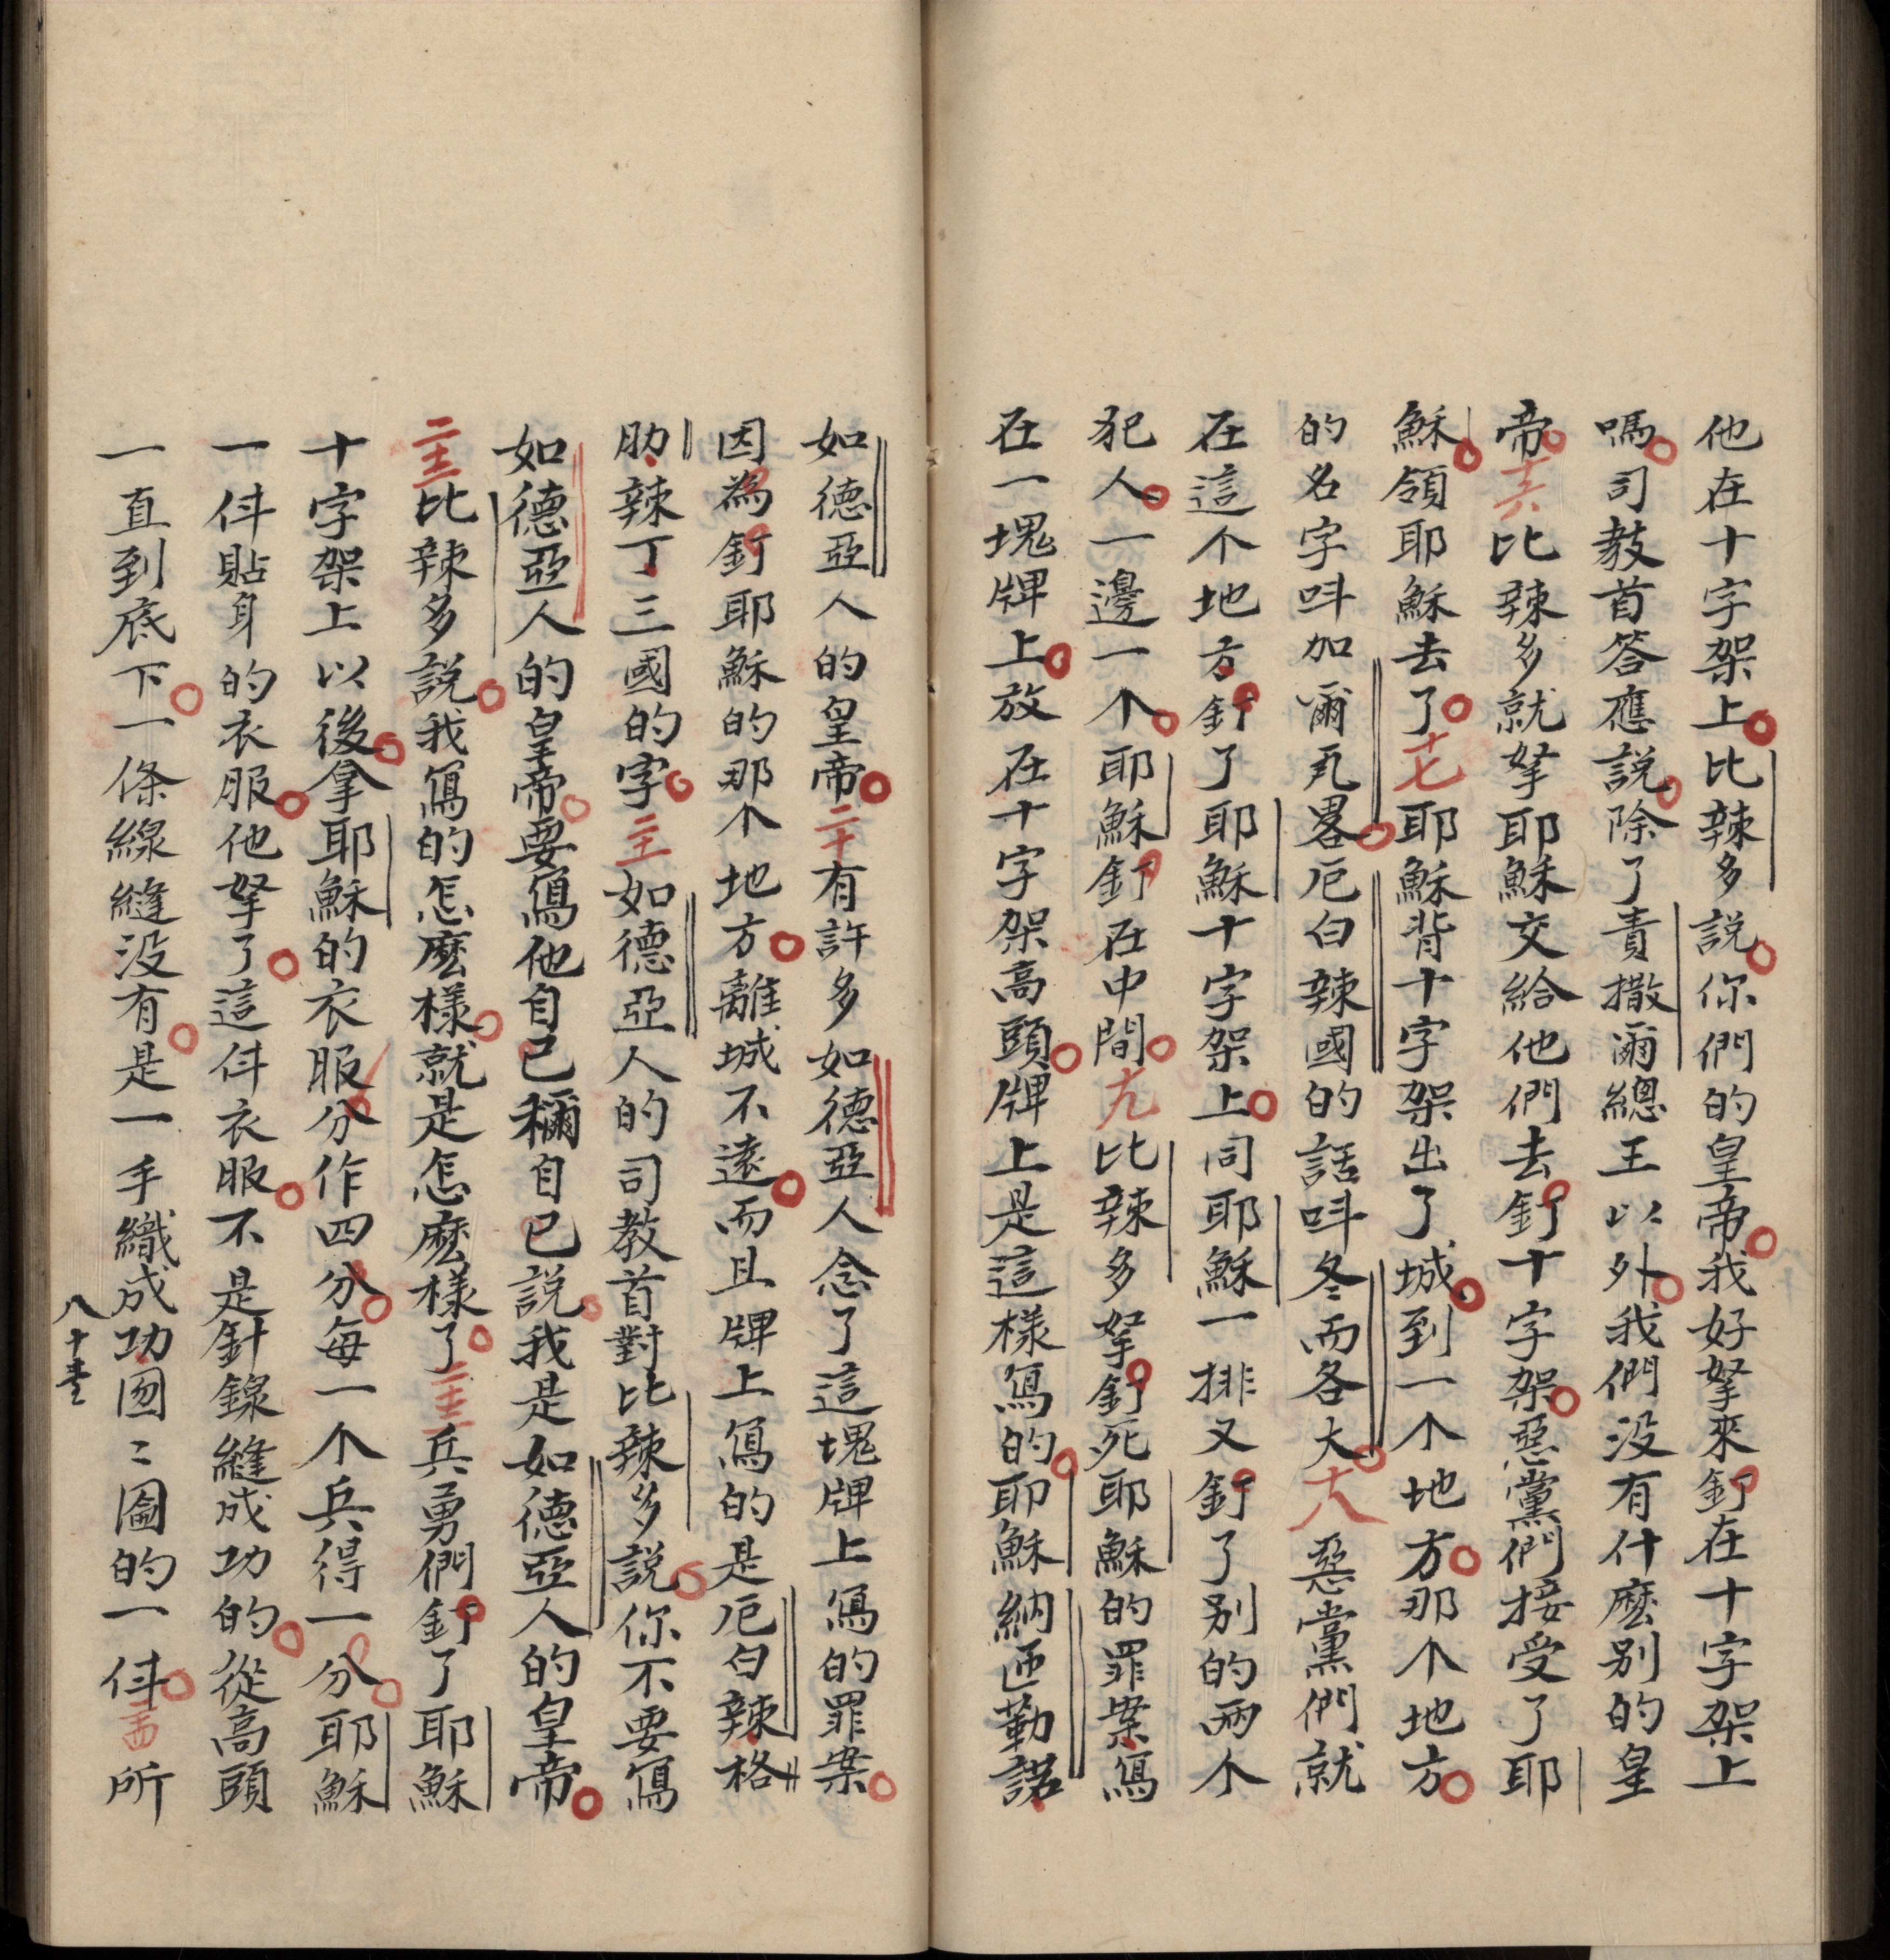 他在十字架上比辣多說你們的皇帝我好拏來釘在十字架上
嗎司教首答應說除了責撒爾總王以外我們没有什麽别的皇
帝十六比辣多就拏耶穌交給他們去釘十字架惡黨們接受了耶
穌領耶穌去了十七耶穌背十字架出了城到一个地方那个地方
的名字呌加爾瓦畧厄白辣國的話呌冬而各大十八惡黨們就
在這个地方釘了耶穌十字架上同耶穌一排又釘了别的兩个
犯人一邊一个耶穌釘在中間十九比辣多拏釘死耶穌的罪案寫
在一塊牌上放在十字架高頭牌上是這樣寫的耶穌納匝勒諾
如德亞人的皇帝二十有許多如德亞人念了這塊牌上寫的罪案
因為釘耶穌的那个地方離城不遠而且牌上寫的是厄白辣格
肋辣丁三國的字二十一如德亞人的司教首對比辣多說你不要寫
如德亞人的皇帝要寫他自己稱自己說我是如德亞人的皇帝
二十二比辣多說我寫的怎麽樣就是怎麽樣了二十三兵勇們釘了耶穌
十字架上以後拿耶穌的衣服分作四分每一个兵得一分耶穌
一件貼身的衣服他拏了這件衣服不是針線縫成功的從高頭
一直到底下一條線縫没有是一手織成功囫囵的一件二十四所
八十